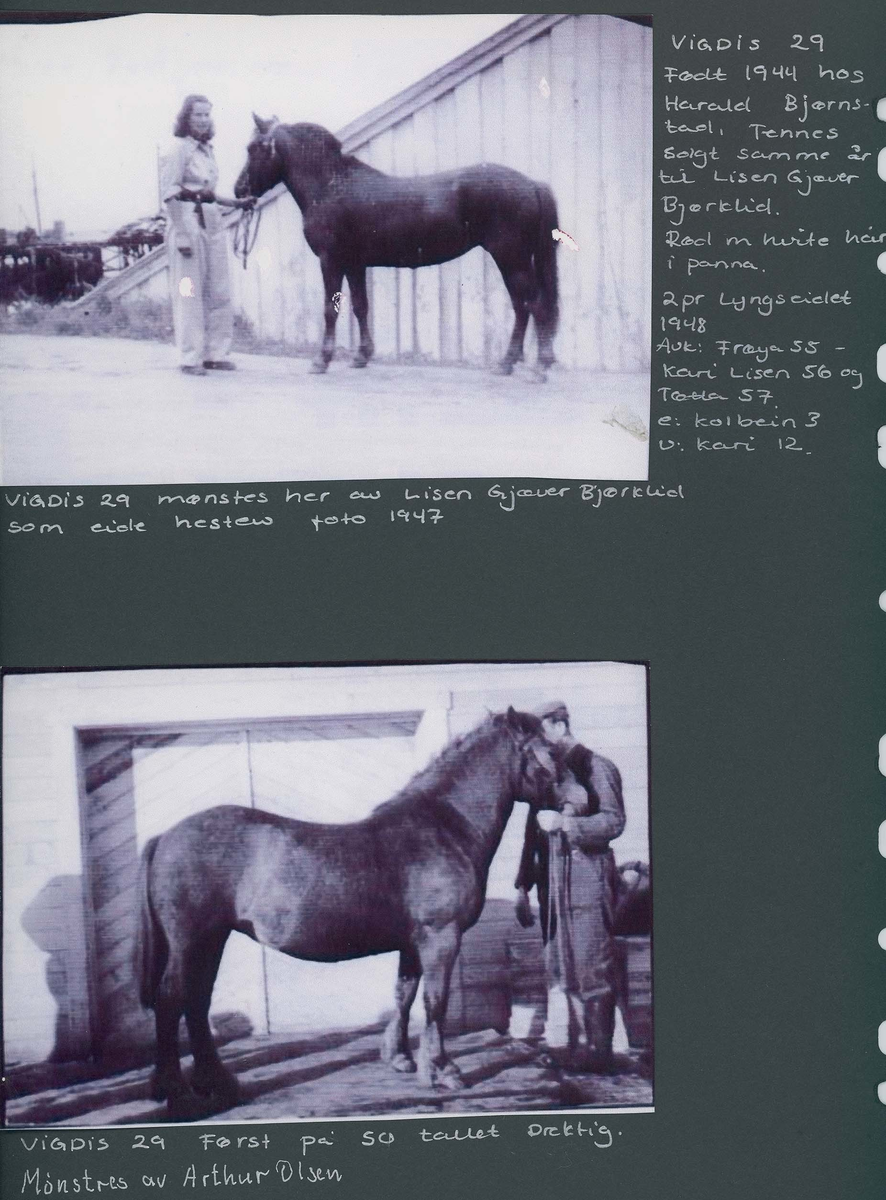 VIGDIS 29
Født 1944 hos
Harald Bjørns-
tad, Tennes
Solgt samme år
til Lisen Gjæver
Bjørklid.
Rød m hvite hår
i panna.
2 pr Lyngseidet
1948
Avk: Frøya 55 -
Kari Lisen 56 og
Tøtta 57.
e: Kolbein 3
u: Kari 12.
VIGDIS 29 mønstes her av Lisen Gjæver Bjørklid
som eide hesten foto 1947
VIGDIS 29 Først på 50 tallet Drektig.
Mönstres av Arthur Olsen